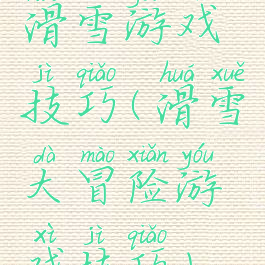 滑雪游戏
jì qiǎo huá xuě
技巧(滑雪
dà mào xiǎn yóu
大冒险游
xì jì qiǎo
戏技巧)